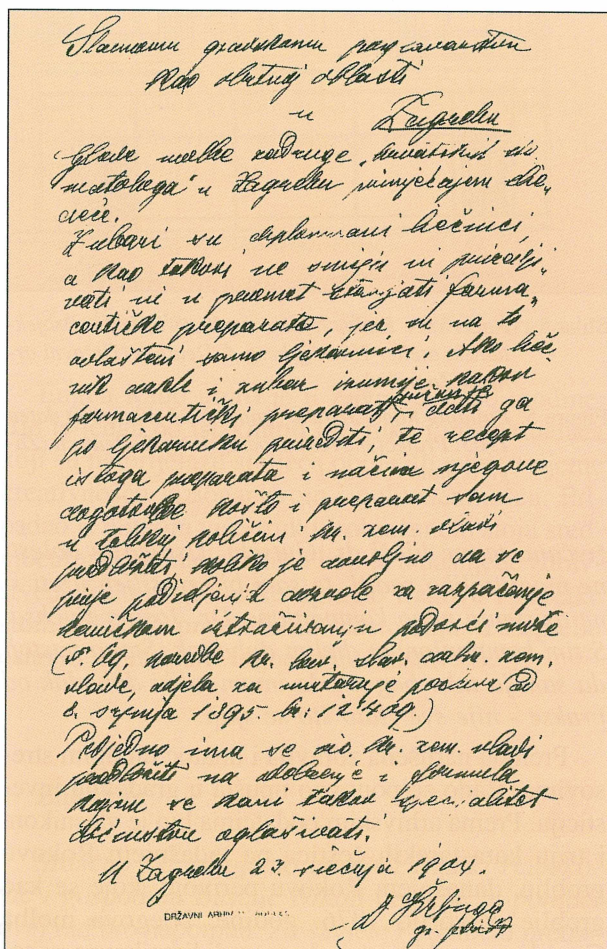 Slavnomu gradskomu poglavarstvu
kao obrtnoj oblasti
u Zagrebu
Glede molbe zadruge „hrvatskih sto„
matologa" u Zagrebu primjećujem slie„
deće.
Zubari su diplomirani liečnici,
a kao takovi ne smiju ni priredji„
vati ni u promet stavljati farma„
ceutičke preparate, jer su na to
ovlašteni samo ljekarnici. Ako lieč
nik dakle i zubar izumije kakov
farmaceutički preparat, dati ga
po ljekarniku prirediti, te recept
istoga preparata i način njegove
dogotovbe kao što i preparat sam
u tolikoj količini kr. zem. vladi
predložiti koliko je dovoljno da se
prije podieljenja dozvole za razpačavanje
kemičkom iztraživanju podvrći može
naredbe kr. hrv. slav. dalm. zem.
vlade, odjela za unutarnje poslove od
8. srpnja 1895. br: 12409.)
Ujedno ima se kr. zem. vladi
predložiti na odobrenje i formula
kojom se kani takav specialitet
občinstvu oglašivati.
U Zagrebu 23. siečnja 1904.
gr. fizik
DRŽAVNI ARHIV